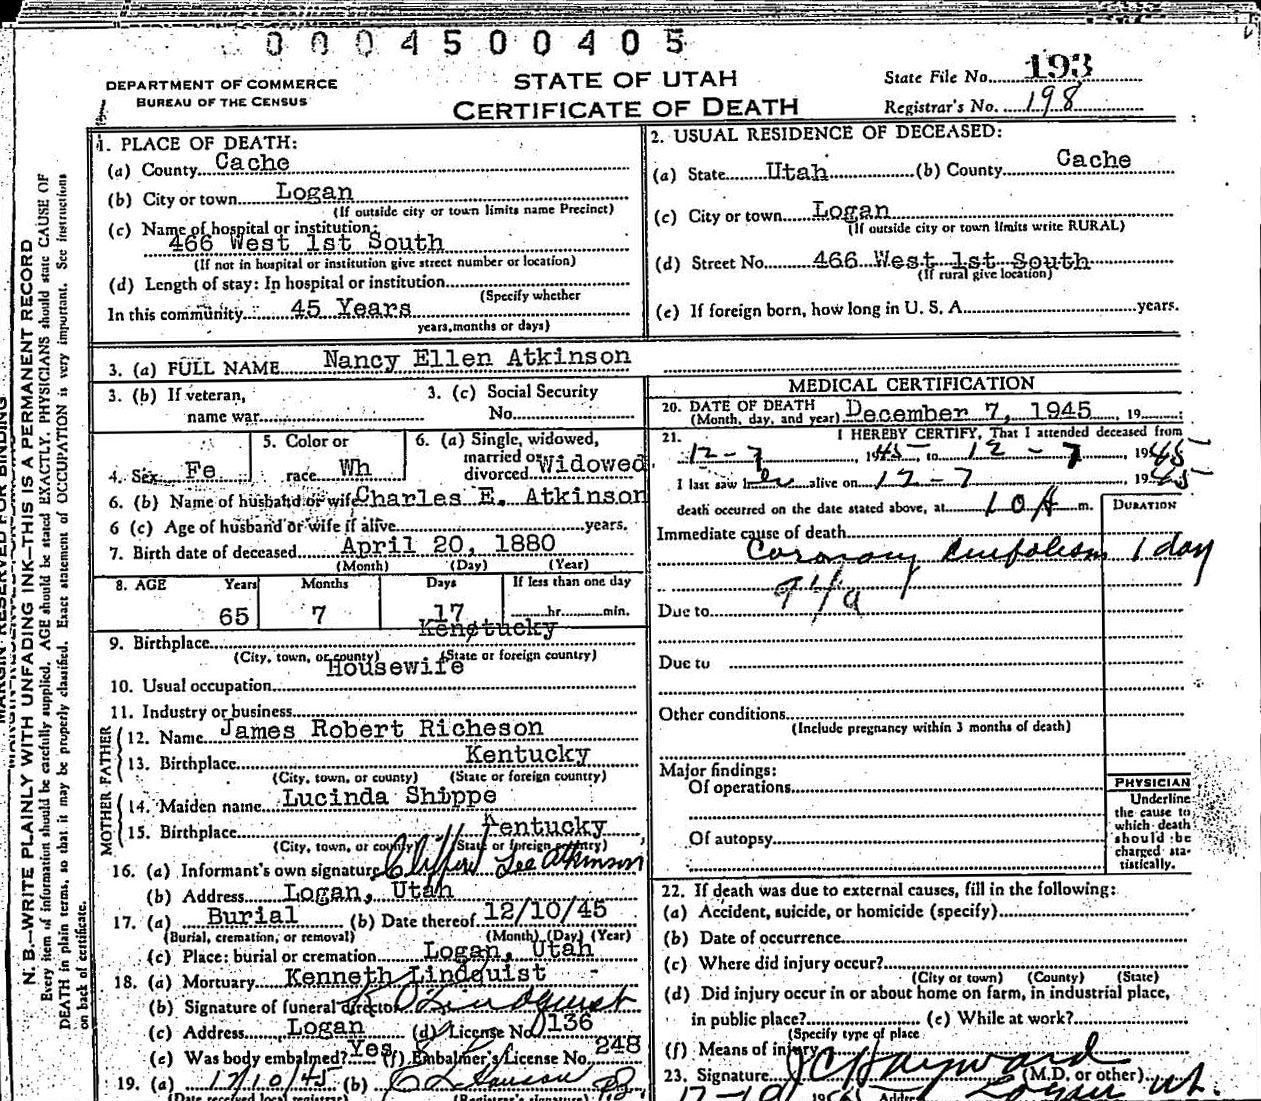 0004500405
DEPARTMENT OF COMMERCE
BUREAU OF THE CENSUS
STATE OF UTAH
CERTIFICATE OF DEATH
State File No. 193
Registrar's No. 198
MARGIN RESERVED FOR BINDING
N. B.—WRITE PLAINLY WITH UNFADING INK—THIS IS A PERMANENT RECORD
Every item of information should be carefully supplied. AGE should be stated EXACTLY. PHYSICIANS should state CAUSE OF
DEATH in plain terms, so that it may be properly classified. Exact statement of OCCUPATION is very important. See instructions
on back of certificate.
1. PLACE OF DEATH:
(a) County Cache
(b) City or town Logan
(If outside city or town limits name Precinct)
(c) Name of hospital or institution:
466 West 1st South
(If not in hospital or institution give street number or location)
(d) Length of stay: In hospital or institution
(Specify whether
In this community 45 Years
years, months or days)
2. USUAL RESIDENCE OF DECEASED:
(a) State Utah (b) County Cache
(c) City or town Logan
(If outside city or town limits write RURAL)
(d) Street No. 466 West 1st South
(If rural give location)
(e) If foreign born, how long in U. S. A. years.
3. (a) FULL NAME Nancy Ellen Atkinson
3. (b) If veteran,
name war
3. (c) Social Security
No.
4. Sex Fe
5. Color or
race Wh
6. (a) Single, widowed,
married or
divorced Widowed
6. (b) Name of husband or wife Charles E. Atkinson
6 (c) Age of husband or wife if alive years.
7. Birth date of deceased April 20, 1880
(Month) (Day) (Year)
8. AGE Years Months Days If less than one day
65 7 17 hr. min.
9. Birthplace Kentucky
(City, town, or county) (State or foreign country)
10. Usual occupation Housewife
11. Industry or business
FATHER
12. Name James Robert Richeson
13. Birthplace Kentucky
(City, town, or county) (State or foreign country)
MOTHER
14. Maiden name Lucinda Shippe
15. Birthplace Kentucky
(City, town, or county) (State or foreign country)
16. (a) Informant's own signature Clifford Lee Atkinson
(b) Address Logan, Utah
17. (a) Burial (b) Date thereof 12/10/45
(Burial, cremation, or removal) (Month) (Day) (Year)
(c) Place: burial or cremation Logan, Utah
18. (a) Mortuary Kenneth Lindquist
(b) Signature of funeral director K O Lindquist
(c) Address Logan (d) License No. 136
(e) Was body embalmed? Yes (f) Embalmer's License No. 248
19. (a) 12/10/45 (b)
(Date received local registrar) (Registrar's signature)
MEDICAL CERTIFICATION
20. DATE OF DEATH
(Month, day, and year) December 7, 1945, 19
21. I HEREBY CERTIFY, That I attended deceased from
12-7, 1945, to 12-7, 1945
I last saw her alive on 12-7, 1945
death occurred on the date stated above, at 10 A m.
DURATION
Immediate cause of death
Coronary Embolism 1 day
94a
Due to
Due to
Other conditions
(Include pregnancy within 3 months of death)
Major findings:
Of operations
Of autopsy
PHYSICIAN
Underline
the cause to
which death
should be
charged sta-
tistically.
22. If death was due to external causes, fill in the following:
(a) Accident, suicide, or homicide (specify)
(b) Date of occurrence
(c) Where did injury occur?
(City or town) (County) (State)
(d) Did injury occur in or about home on farm, in industrial place,
in public place? (e) While at work?
(Specify type of place
(f) Means of injury
23. Signature J C Hayward (M.D. or other)
Address Logan Ut.